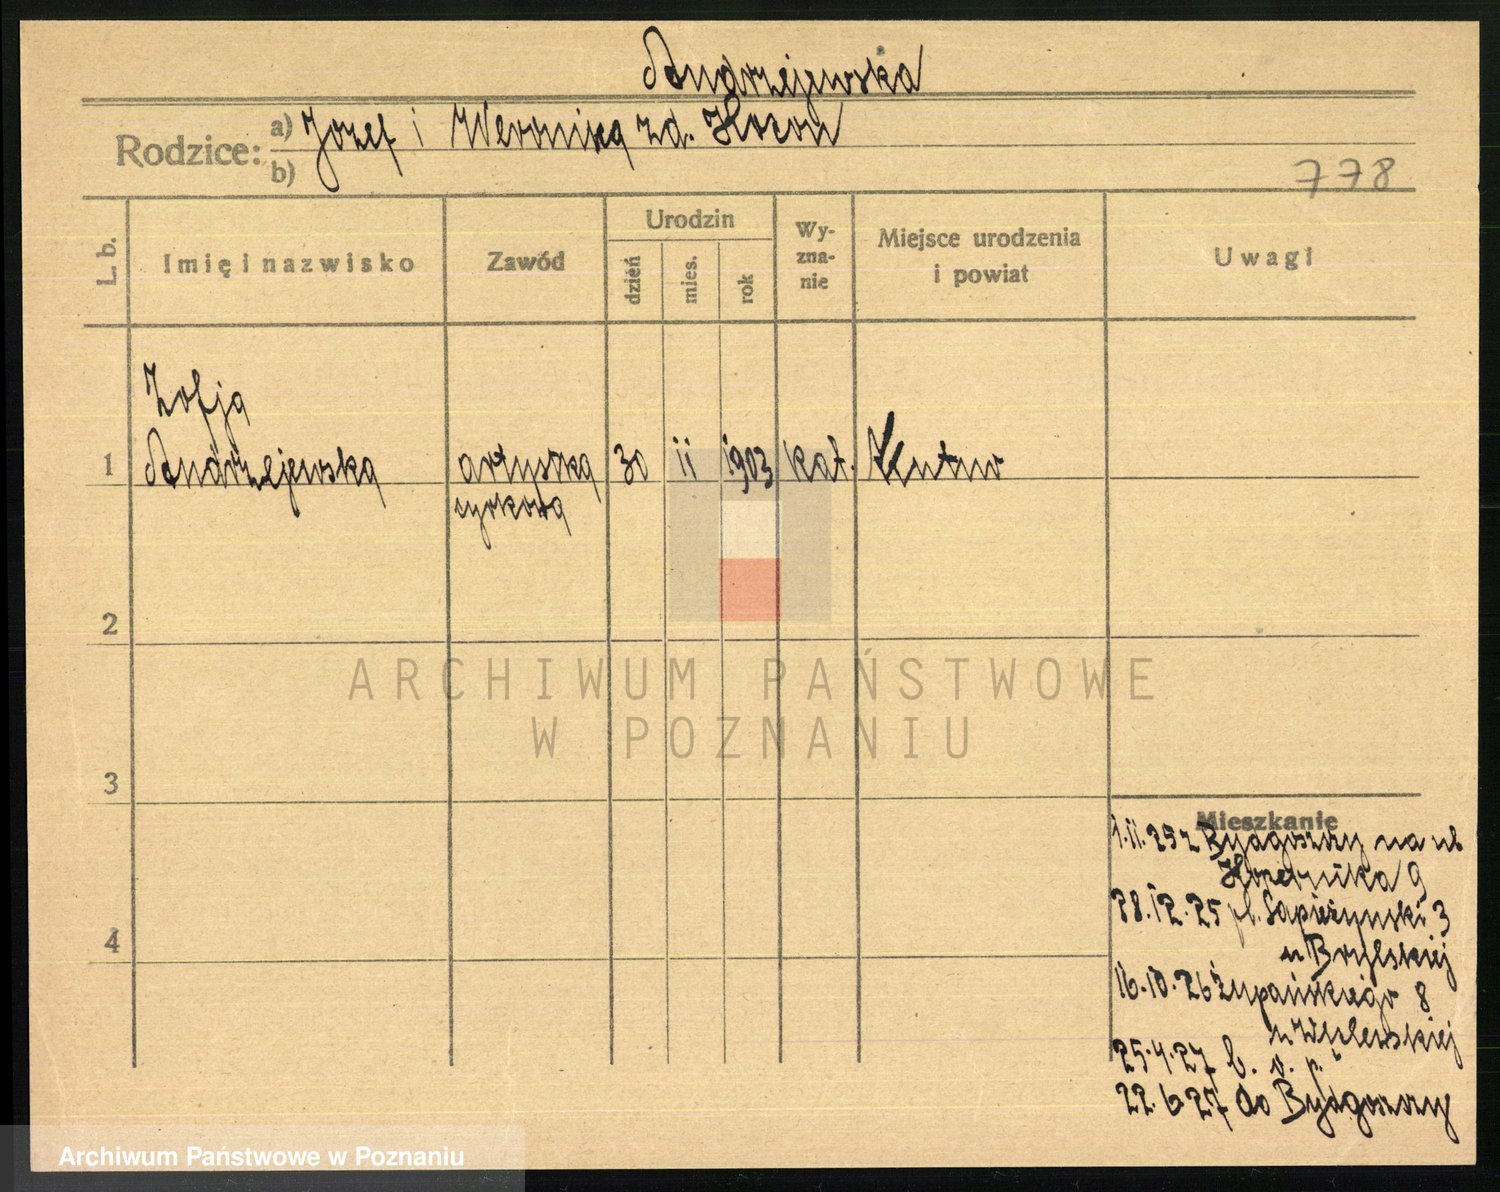 Andrzejewska
Rodzice: a) Józef i Weronika zd.
b)
778
L. b.
Imię i nazwisko
Zawód
Urodzin
dzień
mies.
rok
Wy-
zna-
nie
Miejsce urodzenia
i powiat
Uwagi
Zofja
1 Andrzejewska artystka 30 ii 1903 kat. Kutno
cyrkowa
2
3
4
Mieszkanie
1.11.25 z Bydgoszczy na ul
9
28.12.25 pl. Sapieżyński 3
u Brylskiej
16.10.26 Żupańskiego 8
u
25.4.27 b. o. p.
22.6.27 do Bydgoszczy
ARCHIWUM PAŃSTWOWE
W POZNANIU
Archiwum Państwowe w Poznaniu